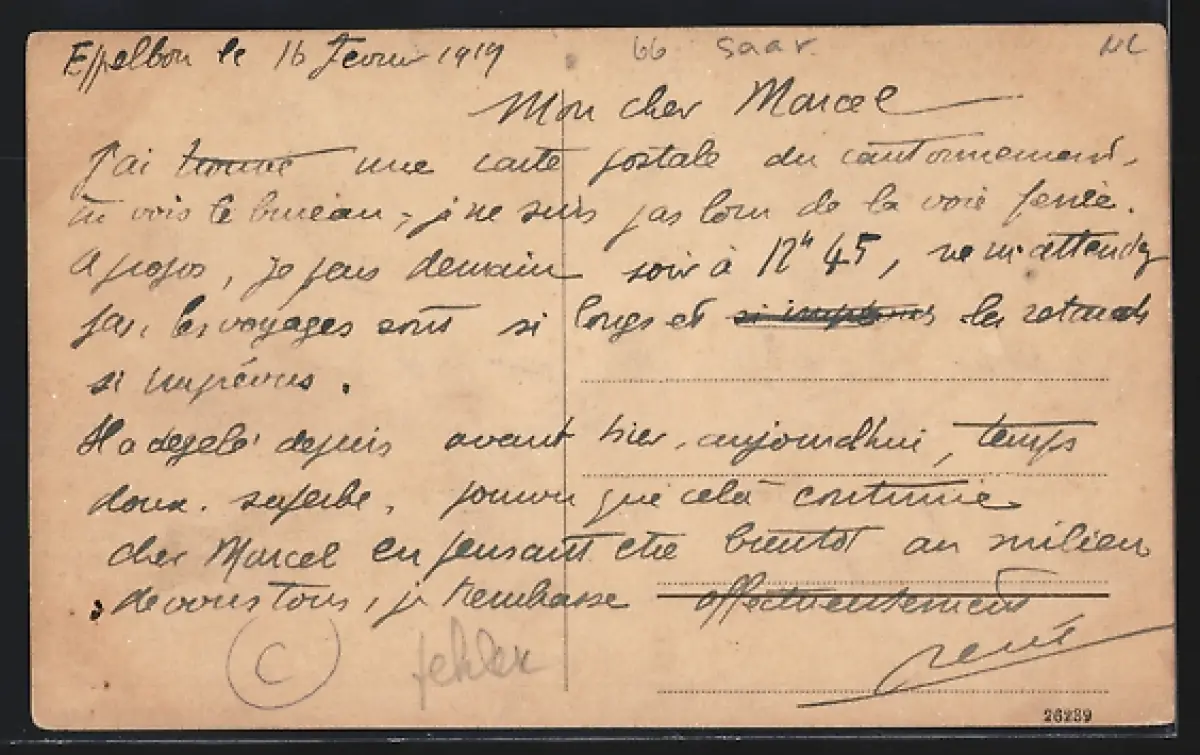 Eppelborn le 16 Février 1919
66 Saar
Mon cher Marcel
J'ai trouvé une carte postale du cantonnement,
tu vois le bureau, je ne suis pas loin de la voie ferrée.
A propos, je pars demain soir à 12h 45, ne m'attendez
pas, les voyages sont si longs et si imprévus les retards
si imprévus.
Il a dégelé depuis avant hier, aujourd'hui, temps
doux, superbe, pourvu que cela continue
cher Marcel en pensant être bientôt au milieu
de vous tous, je t'embrasse affectueusement
René
C
fehler
26239